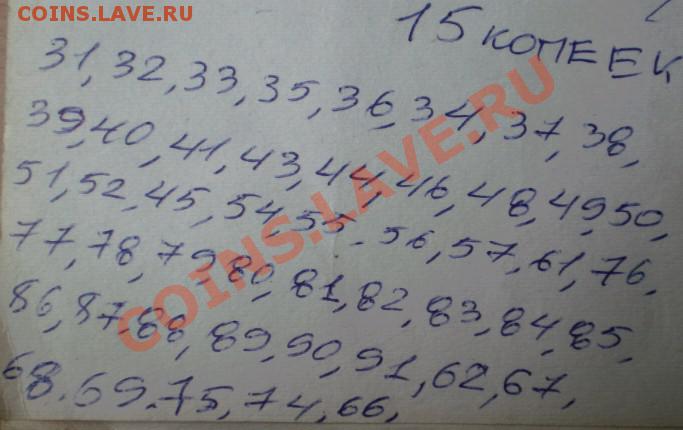 COINS.LAVE.RU
15 копеек
31, 32, 33, 35, 36, 34, 37, 38,
39, 40, 41, 43, 44, 46, 48, 49, 50,
51, 52, 45, 54, 55. 56, 57, 61, 76,
77, 78, 79, 80, 81, 82, 83, 84, 85,
86, 87, 88, 89, 90, 91, 62, 67,
68. 69. 75, 74, 66,
COINS.LAVE.RU